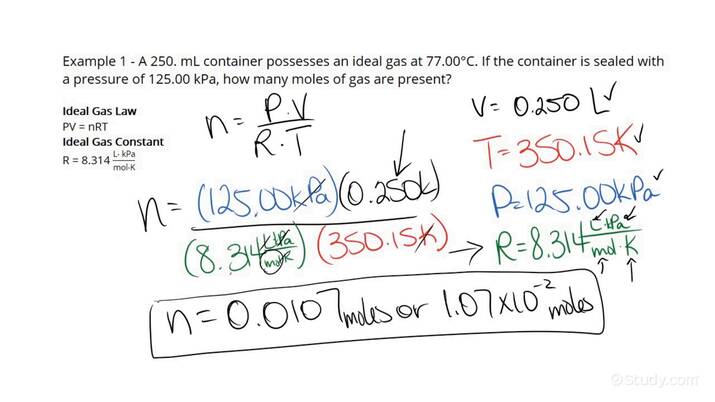 Example 1 - A 250. mL container possesses an ideal gas at 77.00°C. If the container is sealed with
a pressure of 125.00 kPa, how many moles of gas are present?
Ideal Gas Law
PV = nRT
Ideal Gas Constant
R = 8.314 L·kPa/mol·K
n = P·V/R·T
V = 0.250 L ✓
T = 350.15K ✓
P = 125.00kPa ✓
R = 8.314 L·kPa/mol·K
n = (125.00kPa)(0.250L)/(8.314 L·kPa/mol·K)(350.15K)
n = 0.0107 moles or 1.07x10⁻² moles
©Study.com